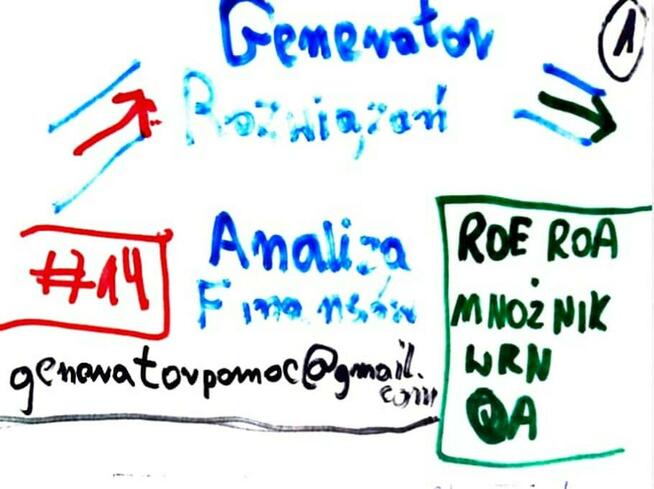 Generator
1
Rozwiązań
#14
Analiza
Finansów
ROE ROA
MNOŻNIK
WRN
QA
generatorpomoc@gmail.
com